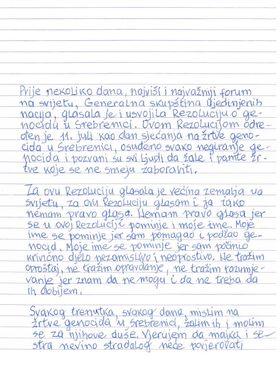 Prije nekoliko dana, najviši i najvažniji forum
na svijetu, Generalna skupština Ujedinjenih
nacija, glasala je i usvojila Rezoluciju o ge-
nocidu u Srebrenici. Ovom Rezolucijom odre-
đen je 11. juli kao dan sjećanja na žrtve geno-
cida u Srebrenici, osuđeno svako negiranje ge-
nocida i pozvani su svi ljudi da žale i pamte žr-
tve koje se ne smeju zaboraviti.
Za ovu Rezoluciju glasala je većina zemalja u
svijetu, za ovu Rezoluciju glasam i ja iako
nemam pravo glasa. Nemam pravo glasa jer
se u ovoj Rezoluciji pominje i moje ime. Moje
ime se pominje jer sam pomagao i podržao ge-
nocid. Moje ime se pominje jer sam počinio
krivično djelo nezamislivo i neoprostivo. Ne tražim
oproštaj, ne tražim opravdanje, ne tražim razumije-
vanje jer znam da ne mogu i da ne treba da
ih dobijem.
Svakog trenutka, svakog dana, mislim na
žrtve genocida u Srebrenici, žalim ih i molim
se za njihove duše. Vjerujem da majka i se-
stra nevino stradalog neće povjerovati